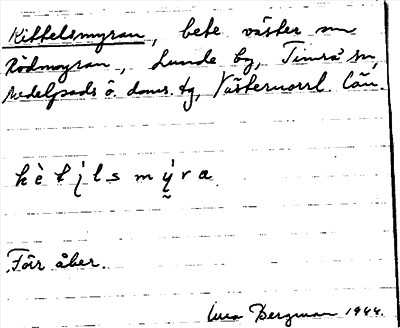 Kittelsmyran, bete väster om
Rödmyran, Lunde by, Timrå sn,
Medelpads ö. doms. tg, Västernorrl. län.
kètịlsmý̰ra
Får åker.
Bergman 1944.